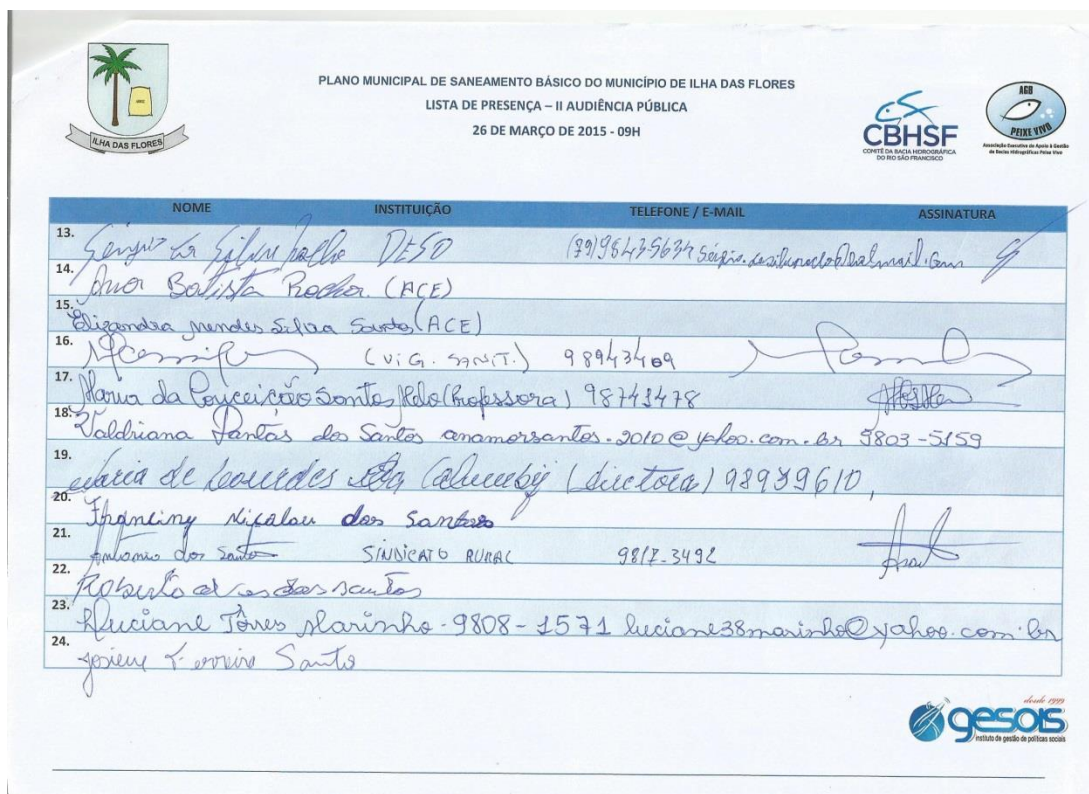 PLANO MUNICIPAL DE SANEAMENTO BÁSICO DO MUNICÍPIO DE ILHA DAS FLORES
LISTA DE PRESENÇA – II AUDIÊNCIA PÚBLICA
26 DE MARÇO DE 2015 - 09H
ILHA DAS FLORES
CBHSF
COMITÊ DA BACIA HIDROGRÁFICA
DO RIO SÃO FRANCISCO
AGB
PEIXE VIVO
Associação Executiva de Apoio à Gestão
de Bacias Hidrográficas Peixe Vivo
NOME INSTITUIÇÃO TELEFONE / E-MAIL ASSINATURA
13. DESO
14. Batista Rocha (ACE)
15. Elizandra Mendes Silva Santos (ACE)
16. (VIG. SANIT.)
17. Maria da Conceição Santos Melo (Professora) 98743478
18. Valdriana Dantas dos Santos anamorsantos.2010@yahoo.com.br 9803-5159
19. Maria de Lourdes (diretora) 98939610
20. dos Santos
21. Antonio dos Santos SINDICATO RURAL 9817-3492
22. Roberto dos santos
23. Luciane Tôrres Marinho - 9808-1571 luciane38marinho@yahoo.com.br
24. Josiene Ferreira Santo
desde 1999
gesois
instituto de gestão de políticas sociais